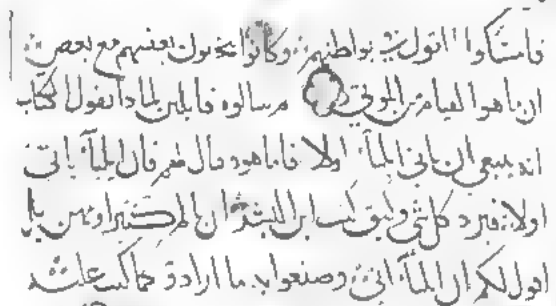 فامسكوا القول في بواطنهم وكانوا يبحثون بعضهم مع بعض
ان ما هو القيام من الموتى ثم سالوه قايلين لماذا تقول الكتاب
انه ينبغي ان ياتي ايلياء اولا فاما هو قال لهم فان ايلياء ياتي
اولا فيرد كل شي وكيف كتب ابن البشر ان كثيرا بل
اقول لكم ان ايلياء اتى وصنعوا به ما ارادو كما كتب عليه